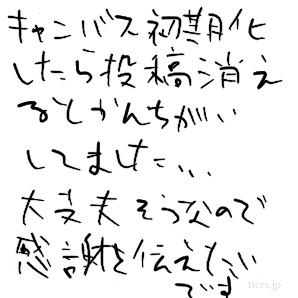 キャンバス初期化
したら投稿消え
るとかんちがい
してました...
大丈夫そうなので
感謝を伝えたい
です
ttcrs.jp